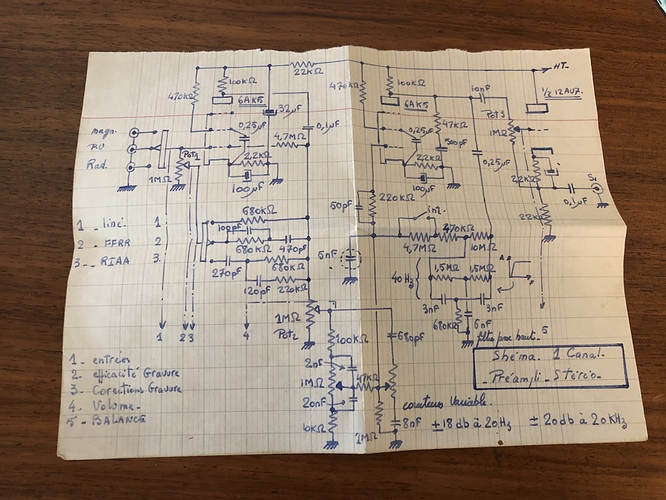 22KΩ
HT-
470KΩ
100KΩ
470KΩ
100KΩ
10nF
1/2 12AU7.
6AK5
32µF
6AK5
47KΩ
Pot5
0,25µF
0,1µF
0,25µF
500pF
1MΩ
magn.
4,7MΩ
0,25µF
Rad.
Pot1
2,2KΩ
2,2KΩ
22KΩ
S1
1MΩ
100µF
100µF
0,1µF
22KΩ
50pF
220KΩ
680KΩ
int.
1 _ liné. 1
100pF
2 _ FFRR 2
680KΩ
470pF
4,7MΩ
470KΩ
10MΩ
3 _ RIAA 3.
5nF
270pF
680KΩ
40Hz
1,5MΩ
1,5MΩ
120pF
220KΩ
3nF
3nF
1MΩ
680KΩ
6nF
Pot2
680pF
filtre passe haut.
5
1 2 3 4
100KΩ
Shéma. 1 Canal.
Préampli. Stéréo.
1. entrées
2nF
2. efficacité Gravure
1MΩ
47KΩ
3. Corections Gravure
20nF
4. Volume.
correcteurs Variable.
5 - BALANCE
10KΩ
1MΩ
8nF
±18db à 20Hz
±20db à 20KHz